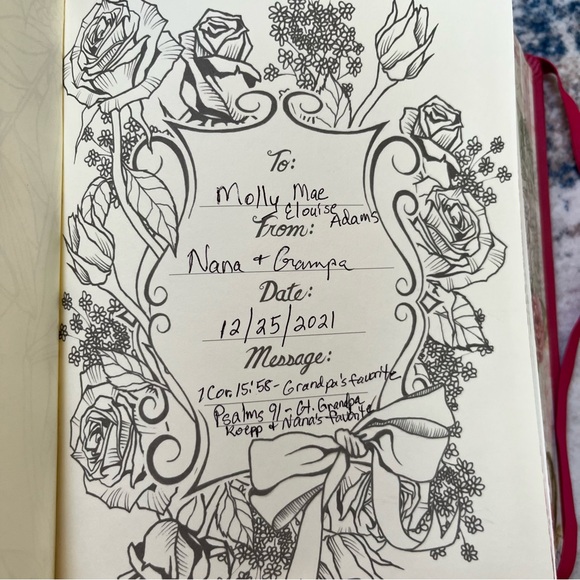 To:
Molly Mae
Elouise Adams
From:
Nana + Grampa
Date:
12/25/2021
Message:
1 Cor. 15:58 - Grandpa's favorite
Psalms 91 - Gt. Grandpa
Roepp & Nana's favorite